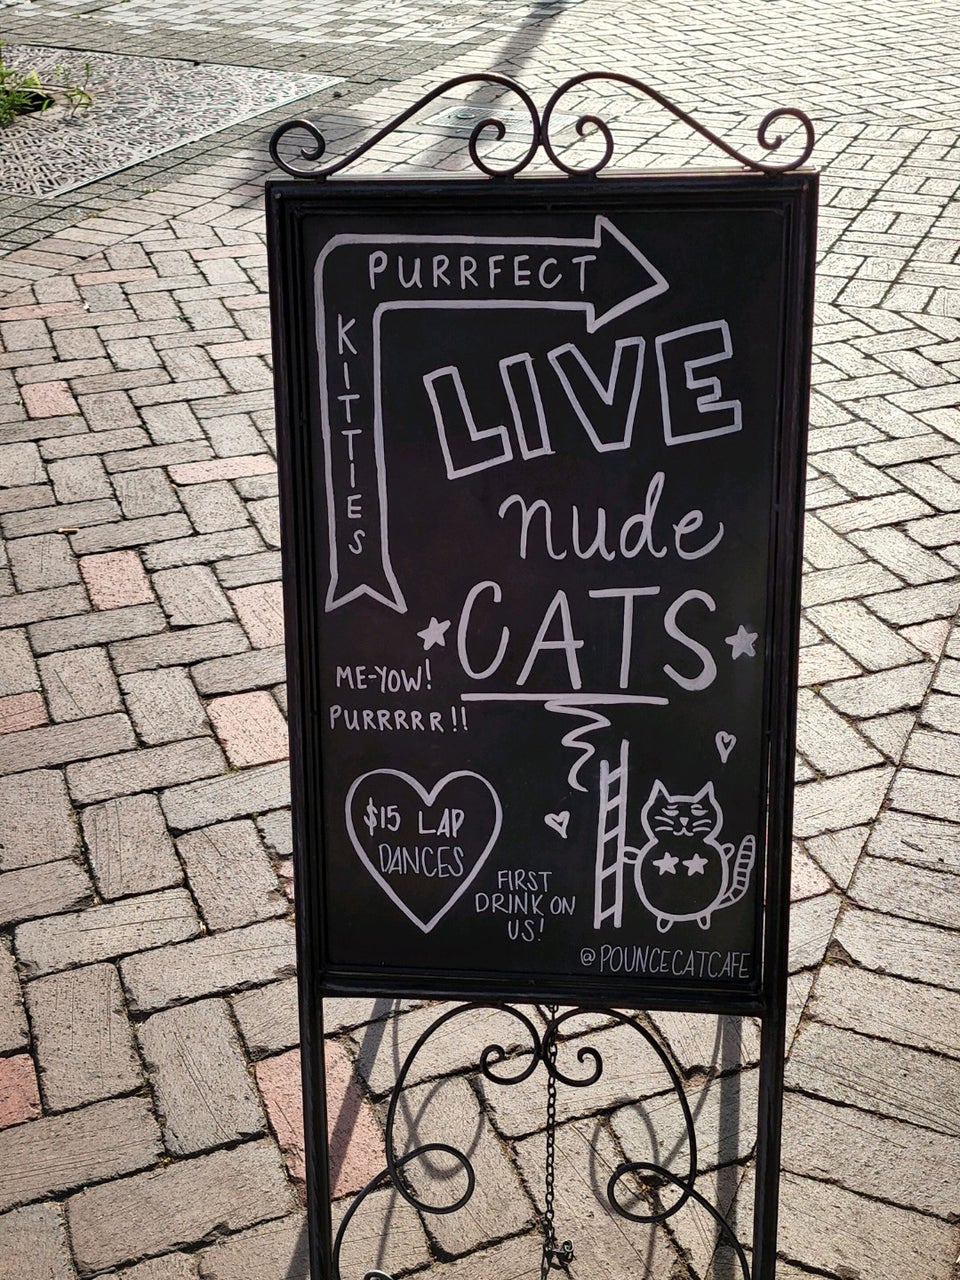 PURRFECT
KITTIES
LIVE
nude
CATS
ME-YOW!
PURRRRR!!
$15 LAP
DANCES
FIRST
DRINK ON
US!
@POUNCECATCAFE